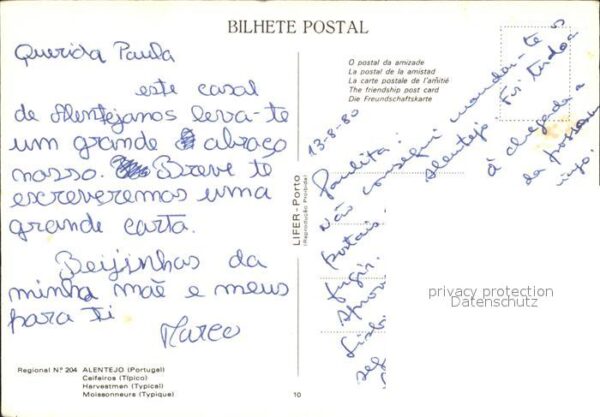 BILHETE POSTAL
Querida Paula
este casal
de Alentejanos leva-te
um grande abraço
nosso. Breve te
escreveremos uma
grande carta.
Beijinhas da
minha mãe e meus
para Ti
Marco
Regional N.º 204 ALENTEJO (Portugal)
Ceifeiros (Típico)
Harvestmen (Typical)
Moissonneurs (Typique)
10
LIFER-Porto
(Reprodução Proibida)
O postal da amizade
La postal de la amistad
La carte postale de l'amitié
The friendship post card
Die Freundschaftskarte
13-8-80
Paulita!
Não consegui mandar-te os
postais. Alentejo Foi tudo a
fugir. à chegada a
da
viaje.
privacy protection
Datenschutz